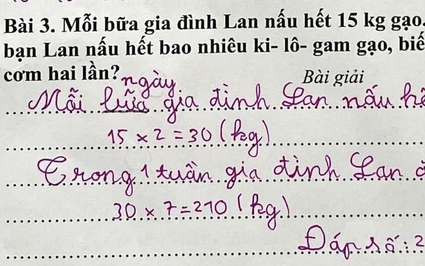 Bài 3. Mỗi bữa gia đình Lan nấu hết 15 kg gạo.
bạn Lan nấu hết bao nhiêu ki- lô- gam gạo, biế
cơm hai lần?
Bài giải
ngày
Mỗi bữa gia đình Lan nấu hế
15 x 2 = 30 (kg)
Trong 1 tuần gia đình Lan
30 x 7 = 210 (kg)
Đáp số: 2